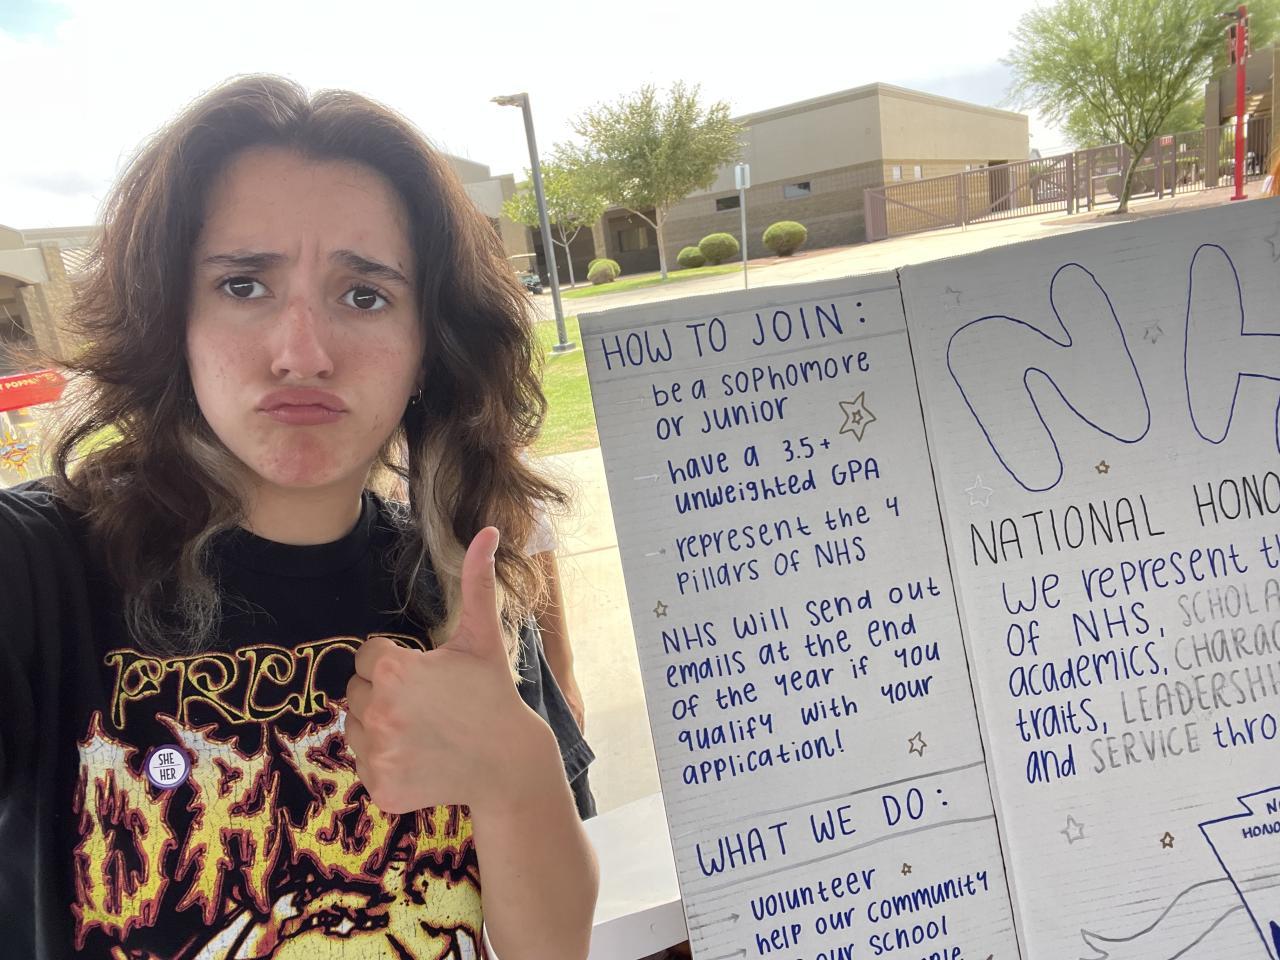 HOW TO JOIN:
be a sophomore
or junior
have a 3.5+
unweighted GPA
represent the 4
pillars of NHS
NHS will send out
emails at the end
of the year if you
qualify with your
application!
WHAT WE DO:
volunteer
help our community
our school
NH
NATIONAL HONO
we represent th
of NHS, SCHOLA
academics, CHARAC
traits, LEADERSHI
and SERVICE thro
SHE
HER